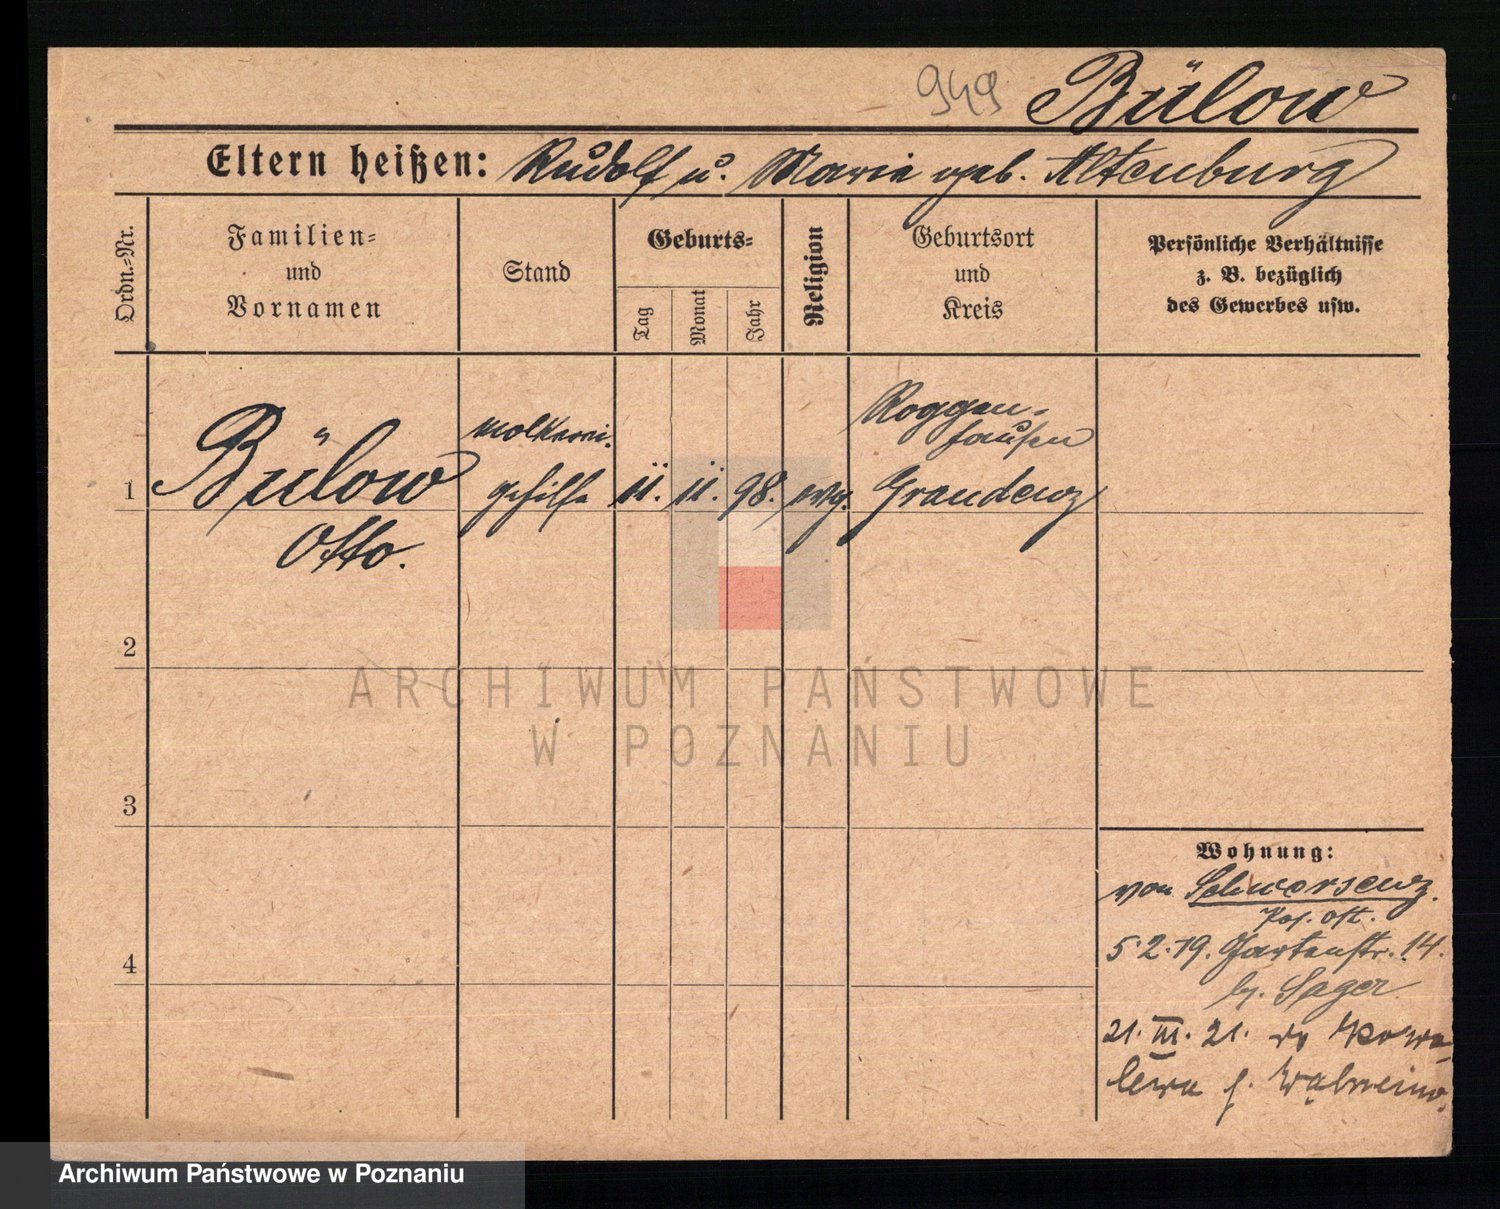 949 Bülow
Eltern heißen: Rudolf u. Marie geb. Altenburg
Ordn.-Nr.
Familien-
und
Vornamen
Stand
Geburts-
Tag
Monat
Jahr
Religion
Geburtsort
und
Kreis
Persönliche Verhältnisse
z. B. bezüglich
des Gewerbes usw.
1
Bülow
Otto.
Molkerei-
gehilfe
11. 11. 98.
evg.
Roggen-
hausen
Graudenz
2
3
4
Wohnung:
von Schwersenz.
Pos. Ost.
5.2.19. Gartenstr. 14.
b. Sager
21. III. 21. do Kowa-
lewa
ARCHIWUM PAŃSTWOWE
W POZNANIU
Archiwum Państwowe w Poznaniu